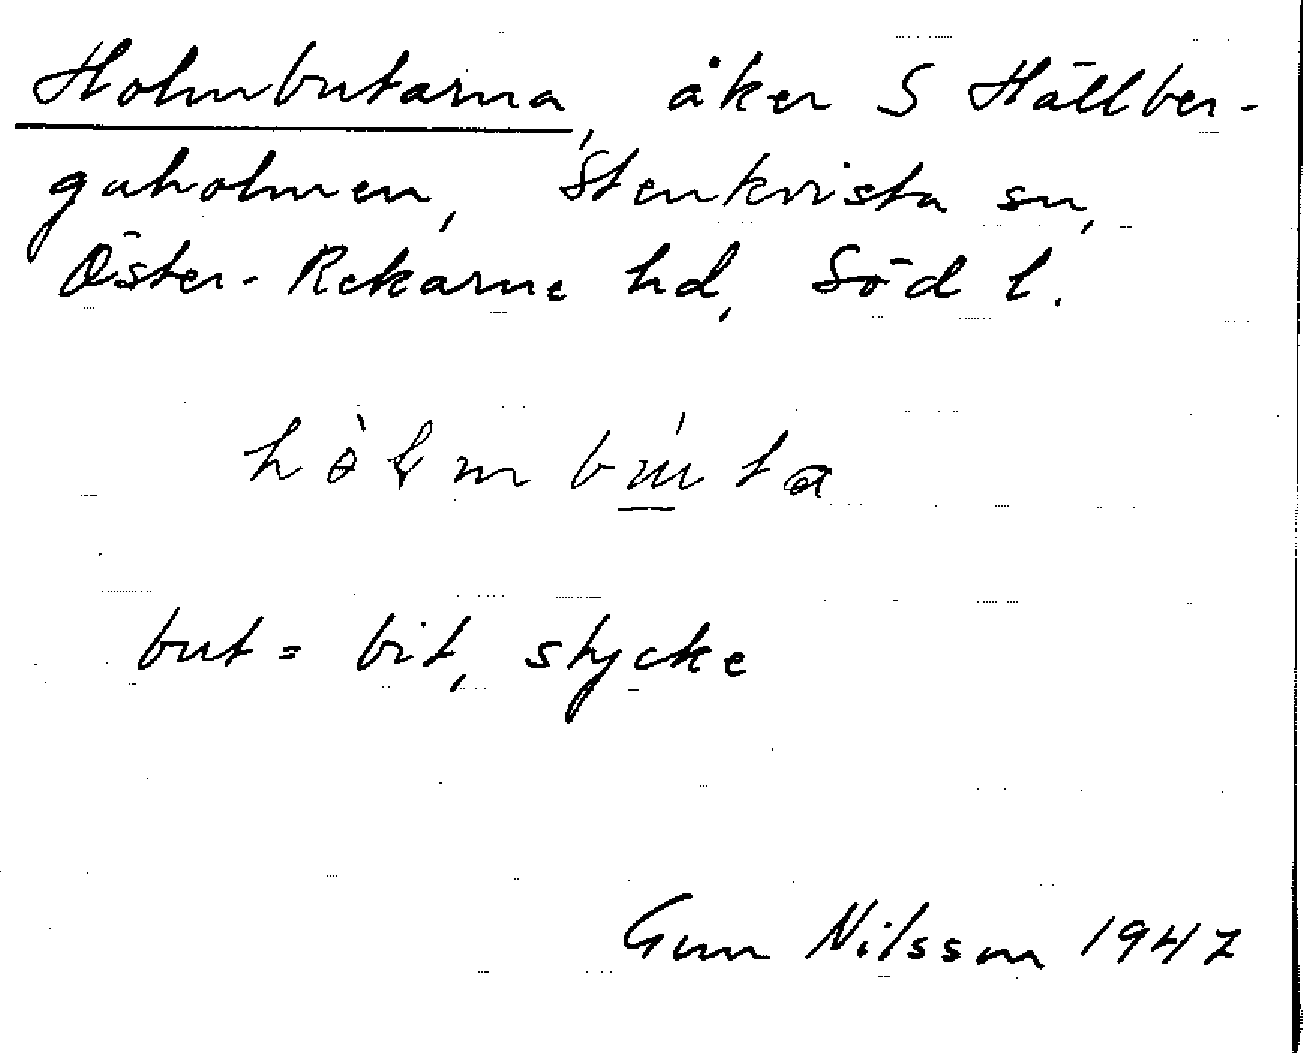 Holmbutarna, åker S Hällber-
gaholmen, Stenkvista sn,
Öster-Rekarne hd, Söd l.
but = bit, stycke
Gun Nilsson 1947